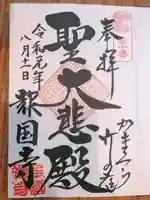 奉拝
かまくら
竹の寺
聖大悲殿
令和元年
八月十二日
報国寺